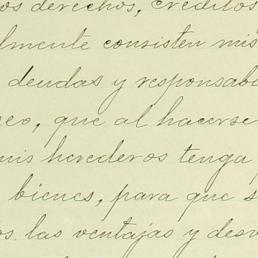 os derechos, créditos
lmente consisten mis
deudas y responsabi
eo, que al hacerse
mis herederos tenga
bienes, para que s
os las ventajas y desv